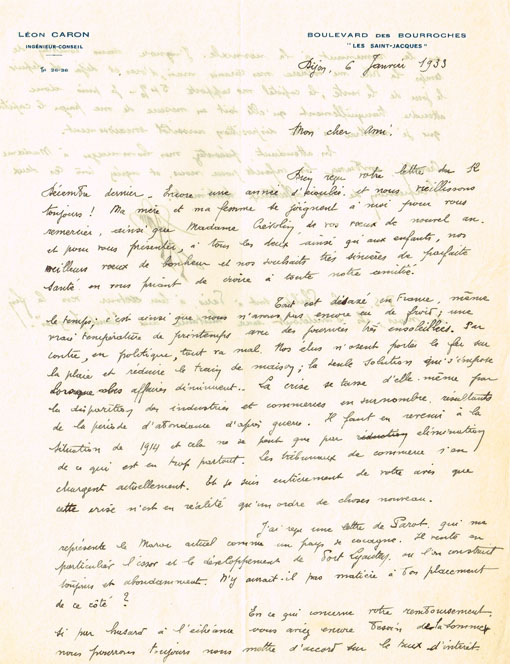 LÉON CARON
INGÉNIEUR-CONSEIL
BOULEVARD DES BOURROCHES
"LES SAINT-JACQUES"
Dijon, 6 Janvier 1933
Mon cher Ami.
Bien reçu votre lettre du
Décembre dernier. Encore une année d'écoulée et nous vieillissons
toujours ! Ma mère et ma femme se joignent à moi pour vous
remercier, ainsi que Madame de vos vœux de nouvel an.
et pour vous présenter, à tous les deux ainsi qu'aux enfants, nos
meilleurs vœux de bonheur et nos souhaits très sincères de parfaite
santé en vous priant de croire à toute notre amitié.
Tout est désaxé en France, même
le temps; c'est ainsi que nous n'avons pas encore eu de froid; une
vraie température de printemps avec des journées très ensoleillées. Par
contre, en politique, tout va mal. Nos élus n'osent porter le fer sur
la plaie et réduire le train de maison; la seule solution qui s'impose
lorsque les affaires diminuent. La crise se tasse d'elle-même par
la disparition des industries et commerces en surnombre, résultants
de la période d'abondance d'après guerre. Il faut en revenir à la
situation de 1914 et cela ne se peut que par élimination
de ce qui est en trop partout. Les tribunaux de commerce s'en
chargent actuellement. Et je suis entièrement de votre avis que
cette crise n'est en réalité qu'un ordre de choses nouveau.
J'ai reçu une lettre de Parot, qui me
représente le Maroc actuel comme un pays de cocagne. Il vante en
particulier l'essor et le développement de Port Lyautey où l'on construit
toujours et abondamment. N'y aurait-il pas matière à bon placement
de ce côté ?
En ce qui concerne votre remboursement,
si par hasard à l'échéance vous aviez encore besoin de la somme
nous pourrons toujours nous mettre d'accord sur le taux d'intérêt.